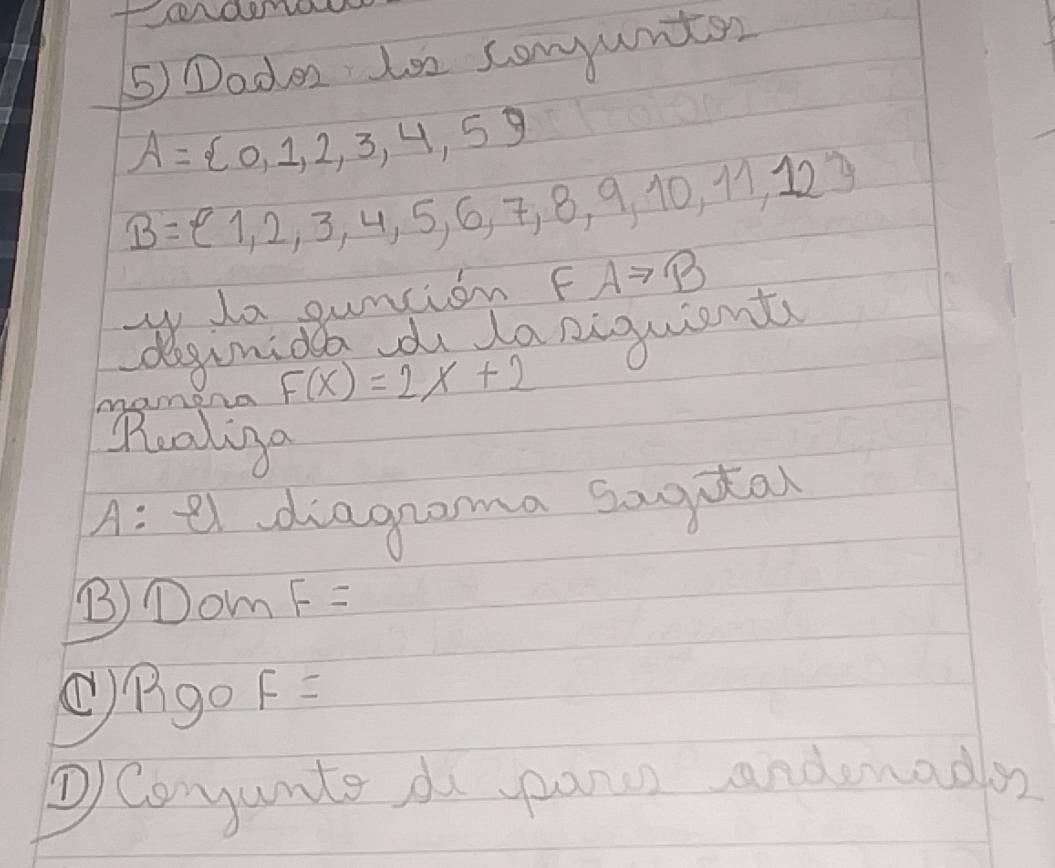 5) Dados los conjuntos
A = {0, 1, 2, 3, 4, 5}
B = {1, 2, 3, 4, 5, 6, 7, 8, 9, 10, 11, 12}
y la función F A → B
definida de la siguiente
manera F(X) = 2X + 2
Realiza
A: el diagrama Sagital
B) Dom F =
C) Rgo F =
D) Conjunto de pares ordenados